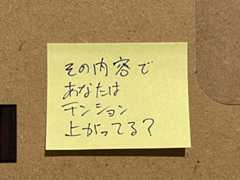 その内容で
あなたは
テンション
上がってる？